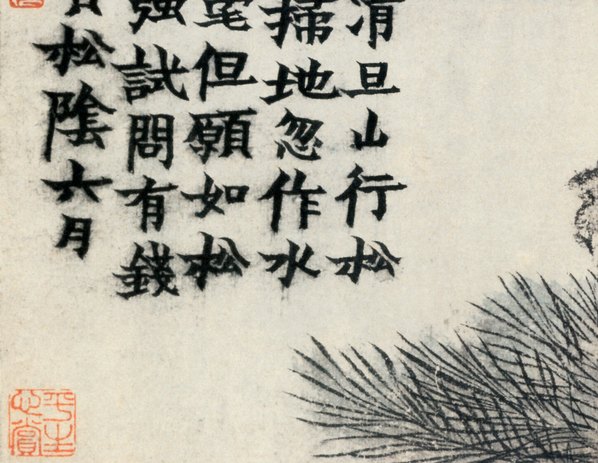 清旦山行松
掃地忽作水
但願如松
強試問有錢
松陰六月
平生心賞